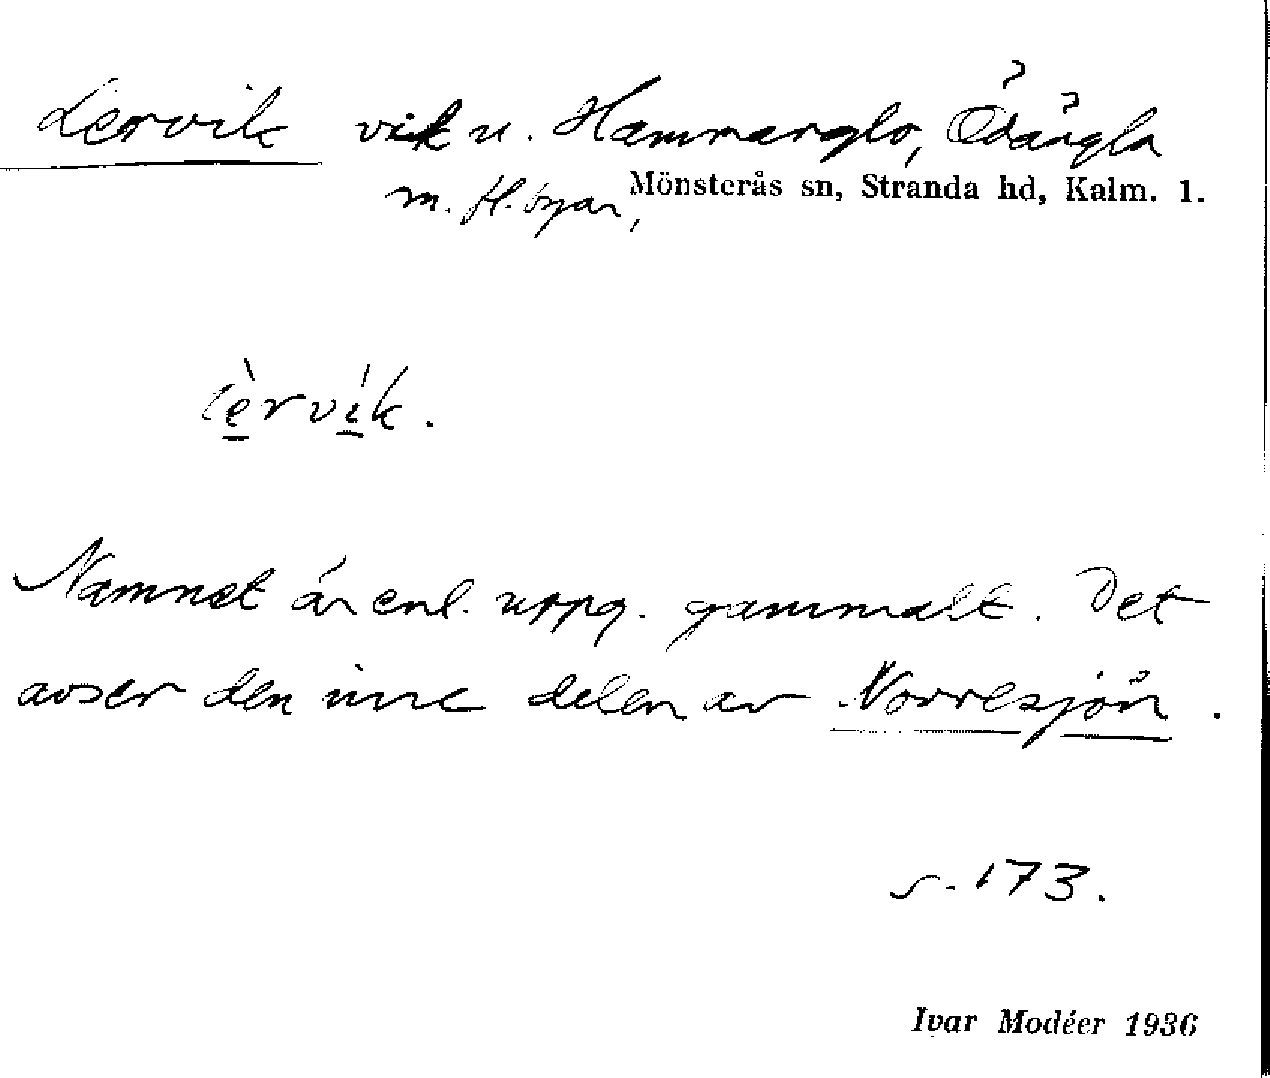 Lervik vik u. Hammarglo, Ödängla
m. fl. byar, Mönsterås sn, Stranda hd, Kalm. l.
lèrvík.
Namnet är enl. uppg. gammalt. Det
avser den inre delen av Norresjön.
s. 173.
Ivar Modéer 1936